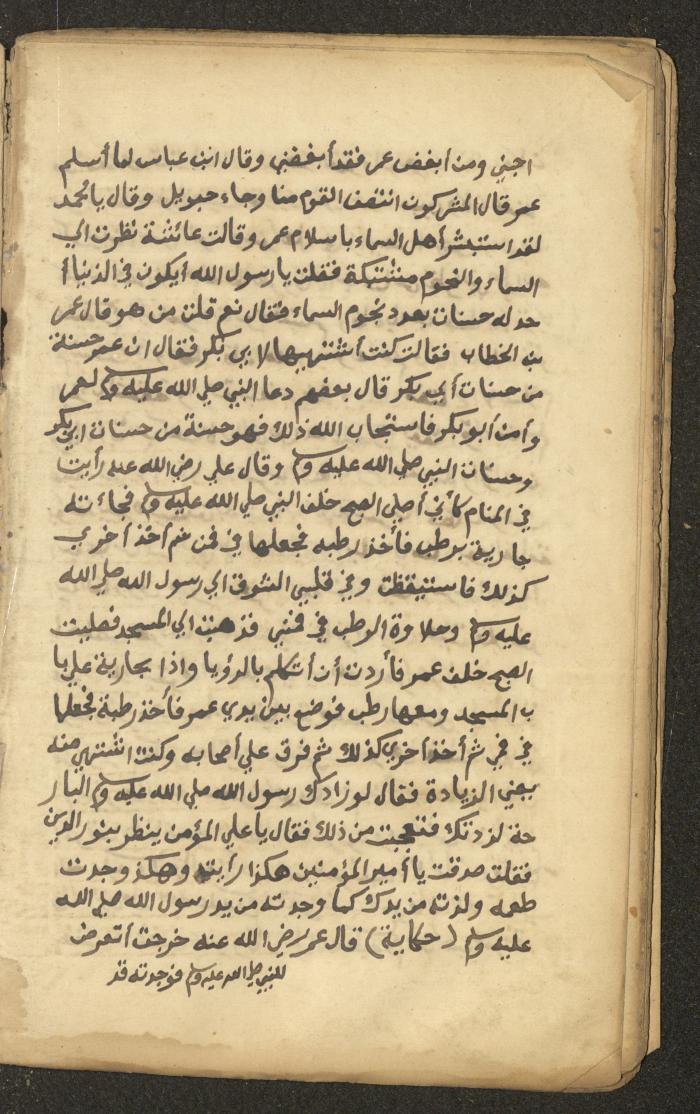 احبني ومن أبغض عمر فقد أبغضني وقال ابن عباس لما أسلم
عمر قال المشركون انتصف القوم منا وجاء جبريل وقال يا محمد
لقد استبشر أهل السماء باسلام عمر وقالت عائشة نظرت الي
السماء والنجوم مشتبكة فقلت يا رسول الله أيكون في الدنيا أ
حد له حسنات بعدد نجوم السماء فقال نعم قلت من هو قال عمر
بن الخطاب فقالت كنت أشتهيها لابي بكر فقال ان عمر حسنة
من حسنات أبي بكر قال بعضهم دعا النبي صلي الله عليه وسلم لعمر
وأمن أبو بكر فاستجاب الله ذلك فهو حسنة من حسنات ابي بكر
وحسنات النبي صلي الله عليه وسلم وقال علي رضي الله عنه رأيت
في المنام كأني أصلي الصبح خلف النبي صلي الله عليه وسلم فجاءته
جارية برطب فأخذ رطبه فجعلها في فمي ثم أخذ أخري
كذلك فاستيقظت وفي قلبي الشوق الي رسول الله صلي الله
عليه وسلم وحلاوة الرطب في فمي فذهبت الي المسجد فصليت
الصبح خلف عمر فأردت أن أتكلم بالرؤيا واذا بجارية علي با
ب المسجد ومعها رطب فوضع بين يدي عمر فأخذ رطبة فجعلها
في فمي ثم أخذ أخري كذلك ثم فرق علي أصحابه وكنت اشتهي منه
يعني الزيادة فقال لو زادك رسول الله صلي الله عليه وسلم البار
حة لزدتك فتعجبت من ذلك فقال يا علي المؤمن ينظر بنور الدين
فقلت صدقت يا أمير المؤمنين هكذا رأيته وهكذ وجدت
طعمه ولذته من يدك كما وجدته من يد رسول الله صلي الله
عليه وسلم (حكاية) قال عمر رضي الله عنه خرجت أتعرض
للنبي صلي الله عليه وسلم فوجدته قد